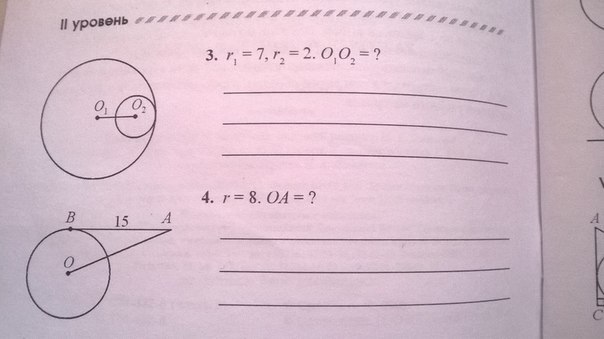 II уровень
3. r₁ = 7, r₂ = 2. O₁O₂ = ?
O₁ O₂
4. r = 8. OA = ?
B 15 A
O
A
C